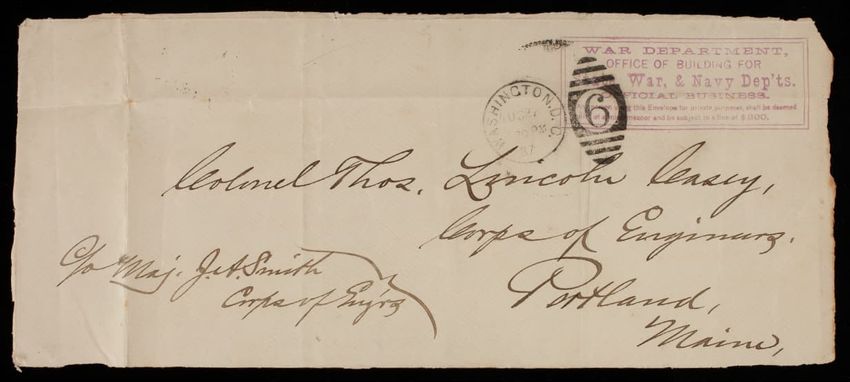 WAR DEPARTMENT,
OFFICE OF BUILDING FOR
War, & Navy Dep'ts.
OFFICIAL BUSINESS.
using this Envelope for private purposes, shall be deemed
and be subject to a fine of $300.
WASHINGTON, D.C.
87
6
Colonel Thos. Lincoln Casey,
Corps of Engineers.
c/o Maj. J.A. Smith
Corps of Eng'rs
Portland,
Maine,